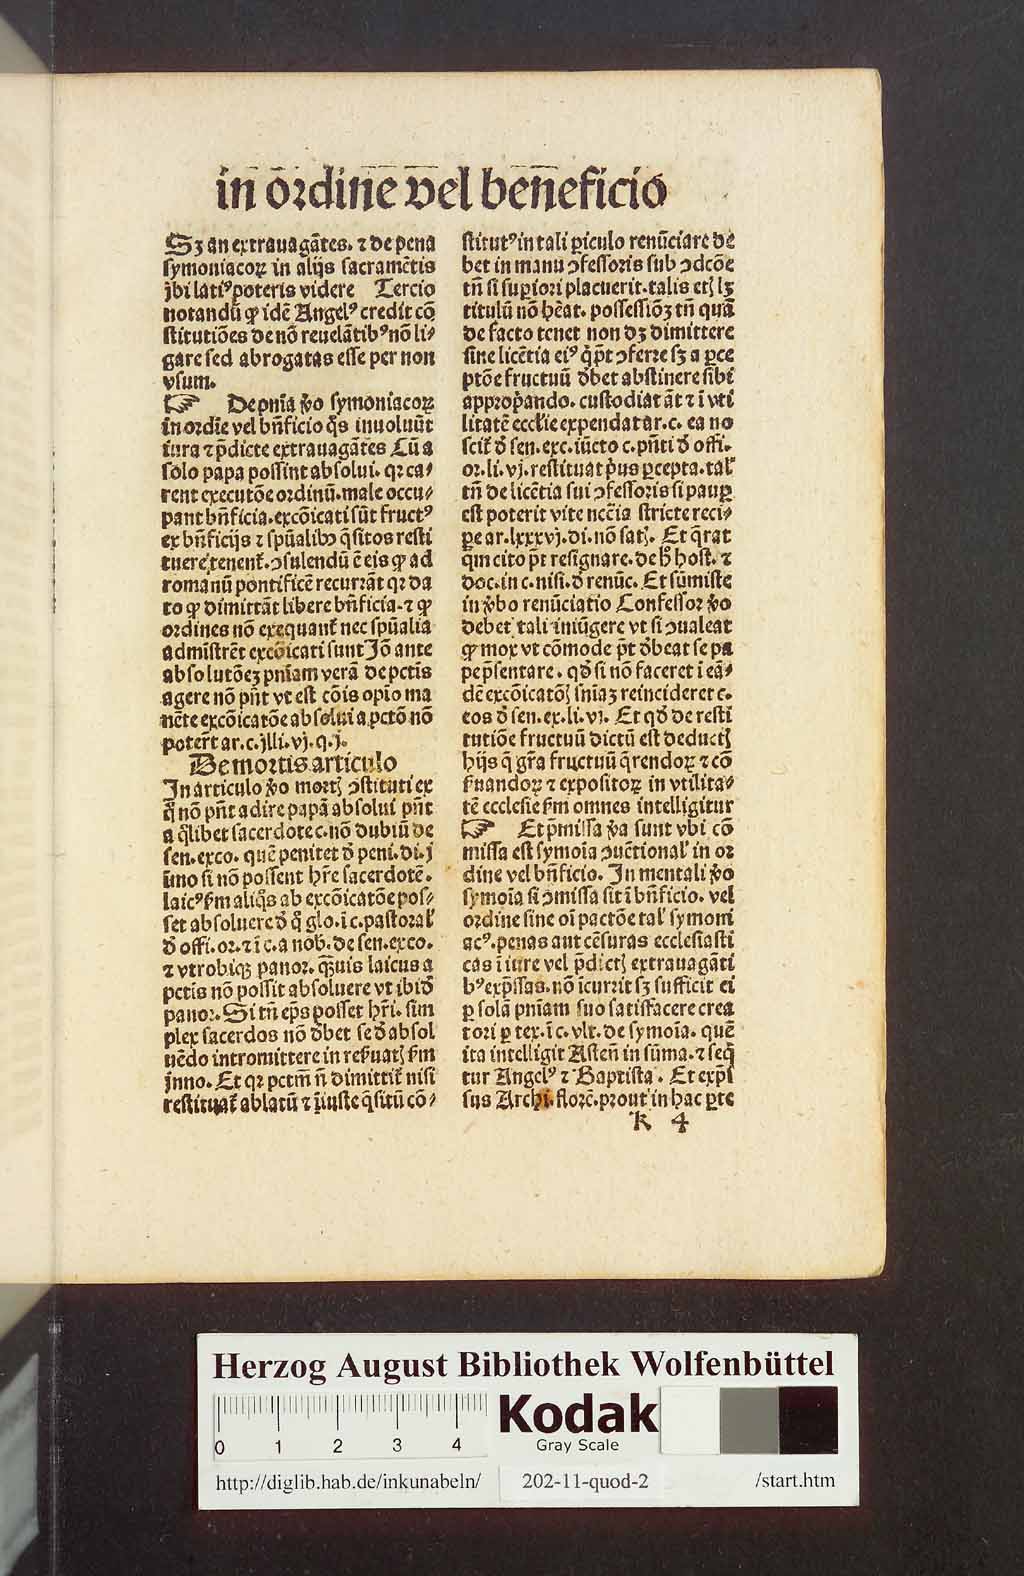 in ordine vel beneficio
Sꝫ an extrauagātes. ⁊ de pena
symoniacoꝝ in alijs sacramētis
jbi latiꝰ poteris videre Tercio
notandū ꝙ idē Angelꝰ credit cō
stitutiōes de nō reuelātibꝰ nō li⸗
gare sed abrogatas esse per non
vsum.
☞ De pnīa ꝟo symoniacoꝝ
in ordīe vel bn̄ficio q̄s inuoluūt
iura ⁊ p̄dicte extrauagātes Cū a
solo papa possint absolui. qꝛ ca⸗
rent executōe ordinū. male occu⸗
pant bn̄ficia. excōicati sūt fructꝰ
ex bn̄ficijs ⁊ spūalibꝰ q̄sitos resti
tuere tenent̄. ɔsulendū ē eis ꝙ ad
romanū pontificē recurrāt qꝛ da
to ꝙ dimittāt libere bn̄ficia. ⁊ ꝙ
ordines nō exequant̄ nec spūalia
admīstrēt excōicati sunt Jō ante
absolutōeꝫ pnīam verā de pctīs
agere nō pn̄t vt est cōis opīo ma
nēte excōicatōe absolui a pctō nō
poter̄t ar. c. jlli. vj. q. j.
De mortis articulo
In articulo ꝟo mortꝭ ɔstituti ex
q̄ nō pn̄t adire papā absolui pn̄t
a q̄libet sacerdote c. nō dubiū de
sen. exco. quē penitet đ peni. di. j
īmo si nō possent hr̄e sacerdotē.
laicꝰ ẜm aliq̄s ab excōicatōe pos⸗
set absoluere đ q̄ glo. ī c. pastoral̓
đ offi. or. ⁊ ī c. a nob̄. de sen. exco.
⁊ vtrobiqꝫ panor. q̄uis laicus a
pctīs nō possit absoluere vt ibiđ
panor. Si tn̄ ep̄s posset hr̄i. sim
plex sacerdos nō đbet se đ absol
uēdo intromittere in reẜuatꝭ ẜm
jnno. Et qꝛ pctm̄ n̄ dimittit̄ nisi
restituat̄ ablatū ⁊ īiuste q̄sitū cō⸗
stitutꝰ in tali ꝑiculo renūciare de
bet in manu ɔfessoris sub ɔdcōe
tn̄ si suꝑiori placuerit. talis etꝭ lꝫ
titulū nō hēat. possessiōꝫ tn̄ quā
de facto tenet non dꝫ dimittere
sine licētia eiꝰ q̄ p̄t ɔferre sꝫ a ꝑce
ptōe fructuū đbet abstinere sibi
approp̄ando. custodiat āt ⁊ ī vti
litatē eccl̄ie expendat ar. c. ea no
scit̄ đ sen. exc. iūcto c. pn̄ti đ offi.
or. li. vj. restituat p̄us ꝑcepta. tal̓
tn̄ de licētia sui ɔfessoris si pauꝑ
est poterit vite nc̄cīa stricte reci⸗
ꝑe ar. lxxxvj. di. nō satꝭ. Et q̄rat
q̄m cito p̄t resignare. de h̄ host. ⁊
doc. in c. nisi. đ renūc. Et sūmiste
in ꝟbo renūciatio Confessor ꝟo
debet tali iniūgere vt si ɔualeat
ꝙ mox vt cōmode p̄t đbeat se pa
pe p̄sentare. qđ si nō faceret ī eā⸗
dē excōicatōꝭ sn̄iaꝫ reincideret c.
eos đ sen. ex. li. vj. Et qđ de resti
tutiōe fructuū dictū est deductꝭ
hijs q̄ gr̄a fructuū q̄rendoꝝ ⁊ cō
ẜuandoꝝ ⁊ expositoꝝ in vtilita⸗
tē ecclesie ẜm omnes intelligitur
☞ Et p̄missa ꝟa sunt vbi cō
missa est symoīa ɔuētional̓ in or
dine vel bn̄ficio. In mentali ꝟo
symoīa si ɔmissa sit ī bn̄ficio. vel
ordine sine oī pactōe tal̓ symoni
acꝰ. penas aut cēsuras ecclesiasti
cas ī iure vel p̄dictꝭ extrauagāti
bꝰ exp̄ssas. nō īcurrit sꝫ sufficit ei
ꝑ solā pnīam suo satisfacere crea
tori ꝑ tex. ī c. vlt. de symoīa. quē
ita intelligit Asten̄ in sūma. ⁊ seq̄
tur Angelꝰ ⁊ Baptista. Et exp̄s
sus Archi. florē. prout in hac ꝑte
k 4
Herzog August Bibliothek Wolfenbüttel
0 1 2 3 4
Kodak
Gray Scale
http://diglib.hab.de/inkunabeln/ 202-11-quod-2 /start.htm